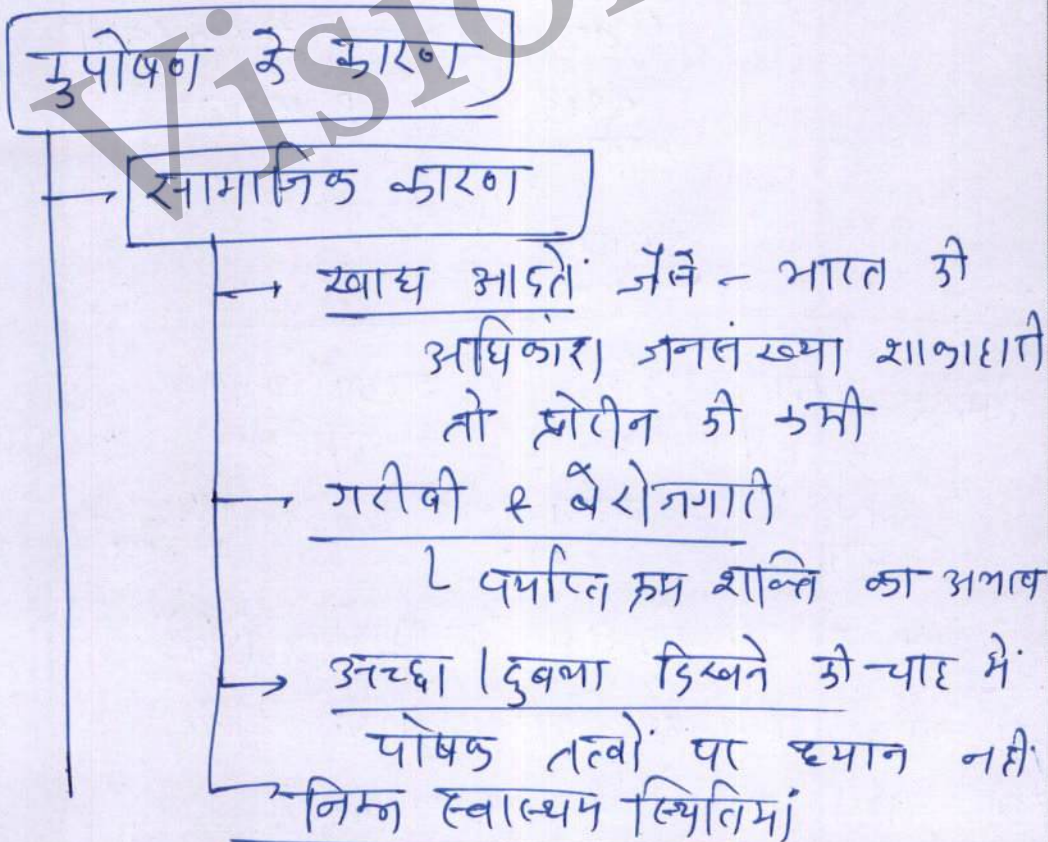 Visio
कुपोषण के कारण
→ सामाजिक कारण
→ खाद्य आदतें जैसे - भारत की
अधिकांश जनसंख्या शाकाहारी
तो प्रोटीन की कमी
→ गरीबी & बेरोजगारी
पर्याप्त क्रय शक्ति का अभाव
→ अच्छा / दुबला दिखने की चाह में
पोषक तत्वों पर ध्यान नहीं
→ निम्न स्वास्थ्य स्थितियां